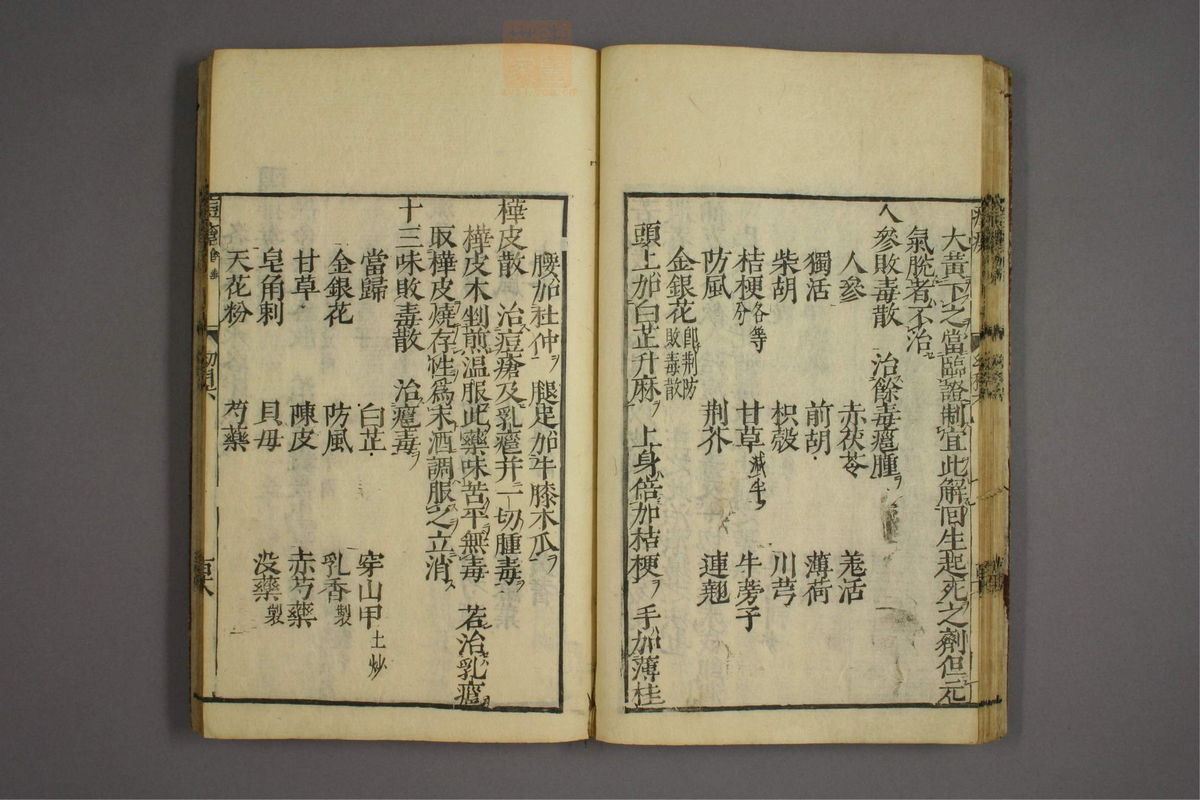 大黃下之當臨證制宜此解回生起死之劑但元
氣脫者不治
人參敗毒散 治餘毒癰腫ヲ
人參 赤茯苓 羗活
獨活 前胡 薄荷
柴胡 枳殼 川芎
桔梗各等分 甘草減半ヲ 牛蒡子
防風 荆芥 連翹
金銀花卽荆防敗毒散
頭上加白芷升麻ヲ 上身倍加桔梗ヲ 手加薄桂
腰加杜仲ヲ 腿足加牛膝木瓜ヲ
樺皮散 治痘瘡及乳癰并一切腫毒ヲ
樺皮木剉煎温服此藥味苦平無毒 若治乳癰
取樺皮燒存性爲末酒調服之立消ス
十三味敗毒散 治癰毒ヲ
當歸 白芷 穿山甲土炒
金銀花 防風 乳香製
甘草 陳皮 赤芍藥
皂角刺 貝母 没藥製
天花粉 芍藥